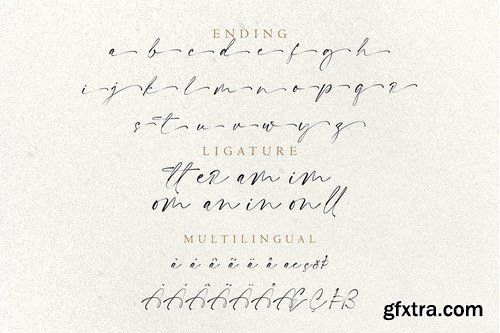 ENDING
a b c d e f g h
i j k l m n o p q r
s t u v w y z
LIGATURE
tt er am im
om an in on ll
MULTILINGUAL
à á â ä ã å æ ç
À Á Â Ä Ã Å Æ Ç
gfxtra.com